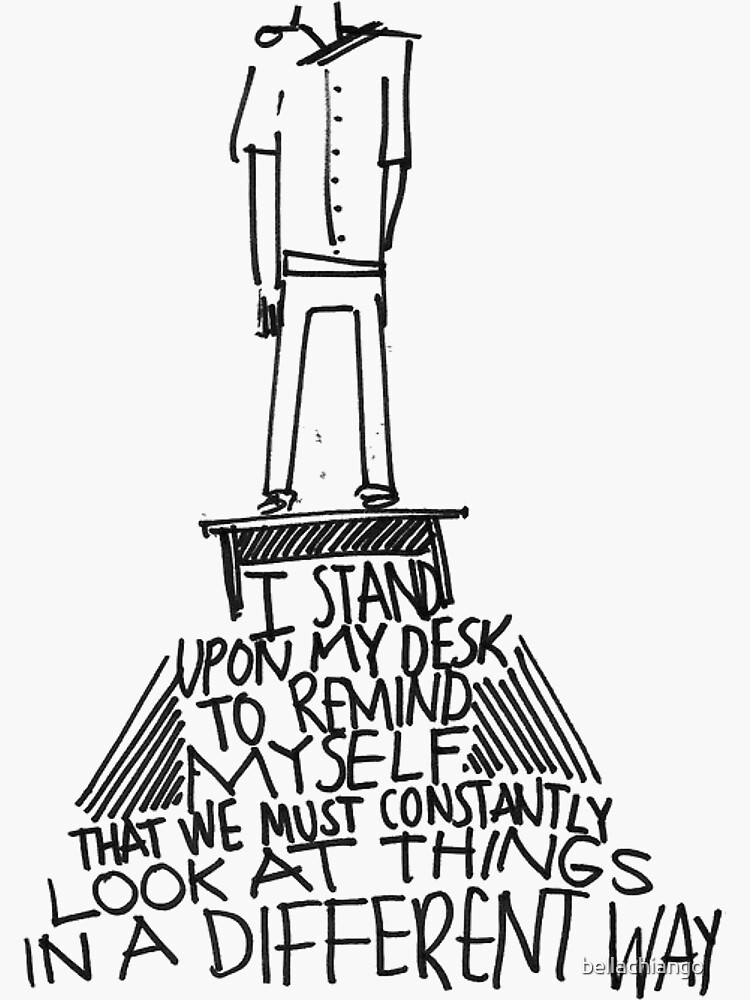 I STAND
UPON MY DESK
TO REMIND
MYSELF
THAT WE MUST CONSTANTLY
LOOK AT THINGS
IN A DIFFERENT WAY
bellachiango